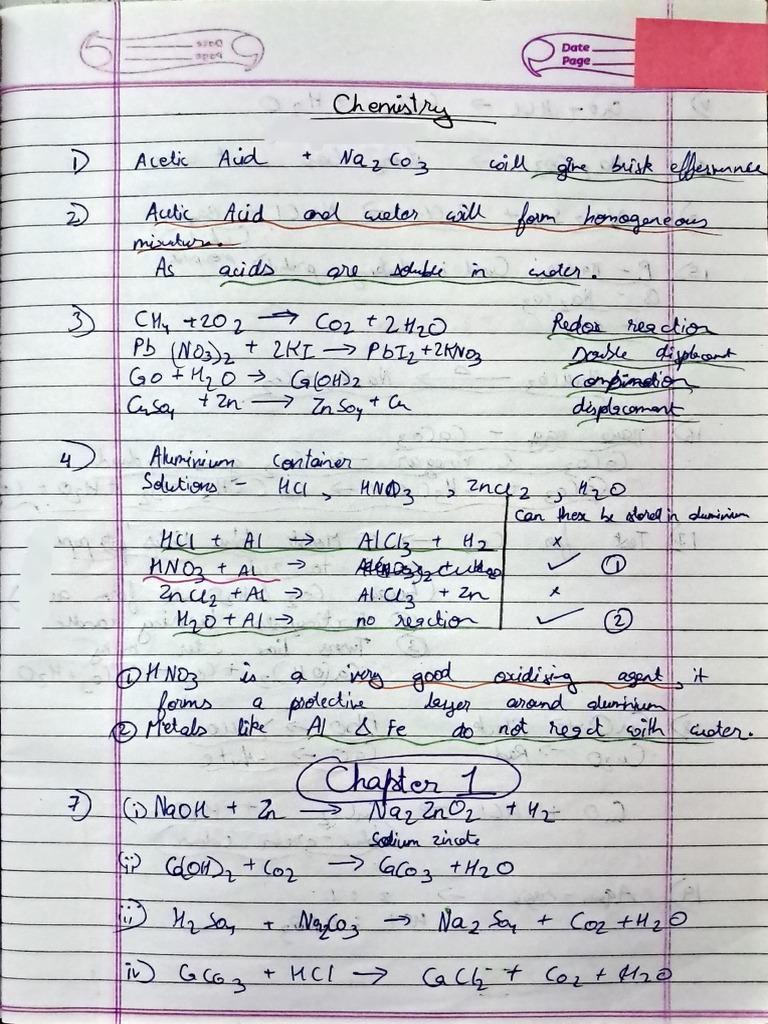 Date
Page
Chemistry
1) Acetic Acid + Na2CO3 will give brisk effervunce
2) Acetic Acid and water will form homogeneous
mixture.
As acids are soluble in water.
3) CH4 + 2O2 → CO2 + 2H2O Redox reaction
Pb(NO3)2 + 2KI → PbI2 + 2KNO3 Double displacant
CaO + H2O → Ca(OH)2 Combination
CuSO4 + Zn → ZnSO4 + Cu displacement
4) Aluminium container
Solutions - HCl, HNO3, ZnCl2, H2O
Can these be stored in aluminium
HCl + Al → AlCl3 + H2 ×
HNO3 + Al → ✓ ①
ZnCl2 + Al → AlCl3 + Zn ×
H2O + Al → no reaction ✓ ②
① HNO3 is a very good oxidising agent, it
forms a protective layer around aluminium
② Metals like Al & Fe do not react with water.
Chapter 1
7) (i) NaOH + Zn → Na2ZnO2 + H2
Sodium zincate
ii) Ca(OH)2 + CO2 → CaCO3 + H2O
iii) H2SO4 + Na2CO3 → Na2SO4 + CO2 + H2O
iv) CaCO3 + HCl → CaCl2 + CO2 + H2O